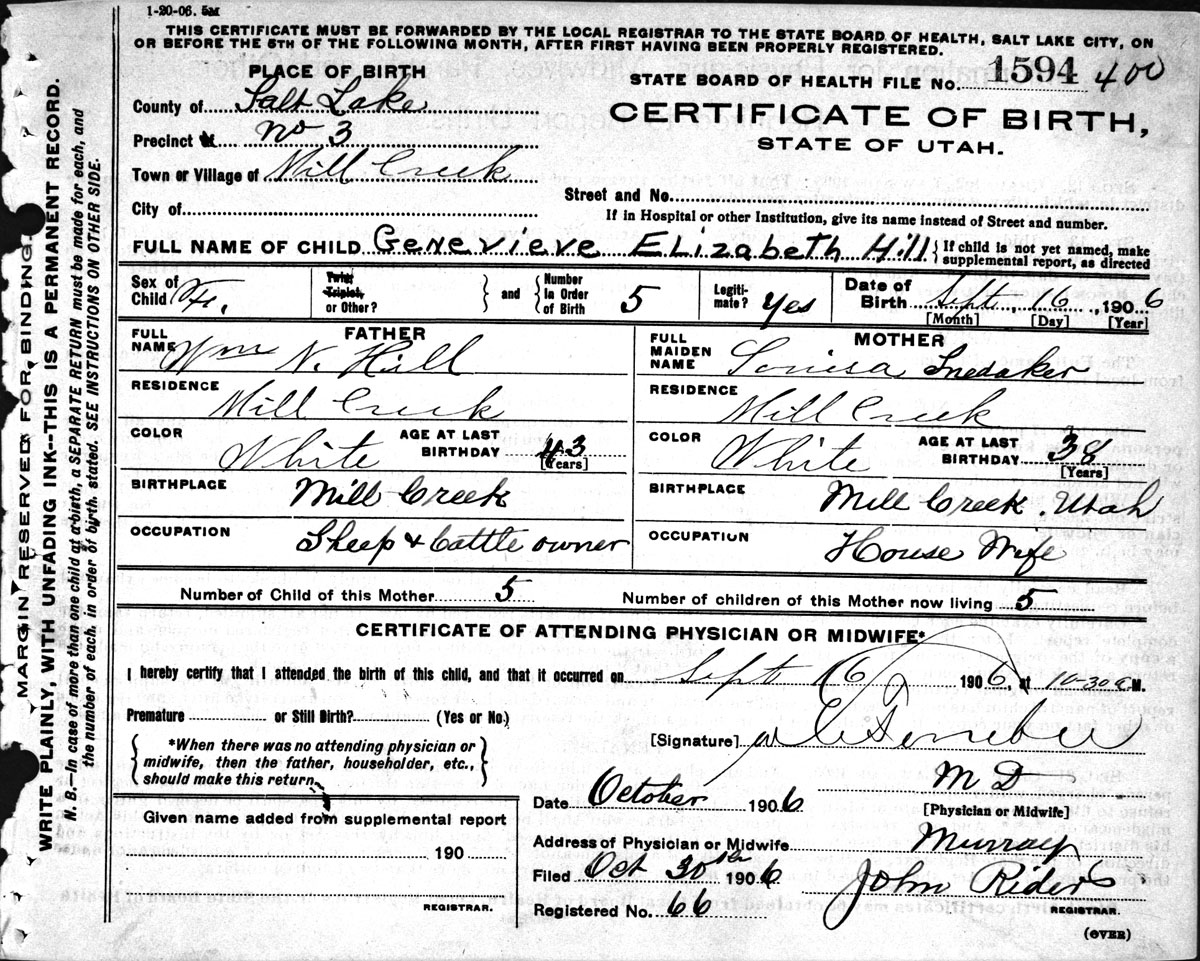 1-20-06. 5M
THIS CERTIFICATE MUST BE FORWARDED BY THE LOCAL REGISTRAR TO THE STATE BOARD OF HEALTH, SALT LAKE CITY, ON
OR BEFORE THE 5TH OF THE FOLLOWING MONTH, AFTER FIRST HAVING BEEN PROPERLY REGISTERED.
PLACE OF BIRTH
STATE BOARD OF HEALTH FILE No. 1594 400
County of Salt Lake
CERTIFICATE OF BIRTH,
Precinct No 3
STATE OF UTAH.
Town or Village of Mill Creek
Street and No.
City of
If in Hospital or other Institution, give its name instead of Street and number.
FULL NAME OF CHILD Genevieve Elizabeth Hill { If child is not yet named, make
supplemental report, as directed
Sex of Child Fe. Twin Triplet, or Other? } and { Number in Order of Birth 5 Legiti-mate? Yes Date of Birth Sept. 16, 1906
[Month] [Day] [Year]
FATHER
FULL NAME Wm N. Hill
RESIDENCE Mill Creek
COLOR White AGE AT LAST BIRTHDAY 43 [Years]
BIRTHPLACE Mill Creek
OCCUPATION Sheep & Cattle owner
MOTHER
FULL MAIDEN NAME Louisa Snedaker
RESIDENCE Mill Creek
COLOR White AGE AT LAST BIRTHDAY 38 [Years]
BIRTHPLACE Mill Creek. Utah
OCCUPATION House Wife
Number of Child of this Mother 5 Number of children of this Mother now living 5
CERTIFICATE OF ATTENDING PHYSICIAN OR MIDWIFE*
I hereby certify that I attended the birth of this child, and that it occurred on Sept 16 1906, at 10-30 a M.
Premature or Still Birth? (Yes or No)
[Signature]
{ *When there was no attending physician or
midwife, then the father, householder, etc.,
should make this return. }
M D
Date October 1906
[Physician or Midwife]
Given name added from supplemental report
190
REGISTRAR.
Address of Physician or Midwife Murray
Filed Oct 30th 1906 John Rider
Registered No. 66 REGISTRAR.
(OVER)
MARGIN RESERVED FOR BINDING.
WRITE PLAINLY, WITH UNFADING INK--THIS IS A PERMANENT RECORD.
N. B.—In case of more than one child at a birth, a SEPARATE RETURN must be made for each, and
the number of each, in order of birth, stated. SEE INSTRUCTIONS ON OTHER SIDE.